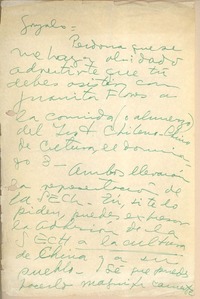 Gonzalo =
Perdona que se
me haya olvidado
advertirte que tú
debes asistir con
Juanita Flores a
la comida, o almuerzo
del Inst Chileno-Chino
de Cultura, el domin-
go 3 —
Ambos llevarán
la representación de
la SECH. — Tú, si te lo
piden, puedes expresar
la adhesión de la
SECH a la cultura
de China y a su
pueblo. — Sé que puedes
hacerlo